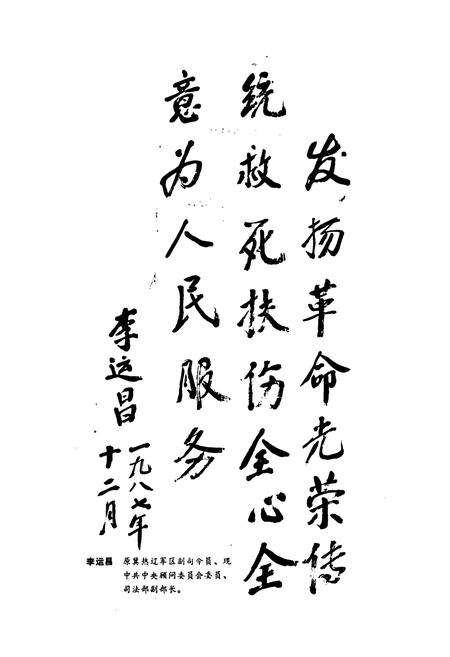 发扬革命光荣传
统救死扶伤全心全
意为人民服务
李运昌
一九八七年
十二月
李运昌 原冀热辽军区副司令员、现
中共中央顾问委员会委员、
司法部副部长。